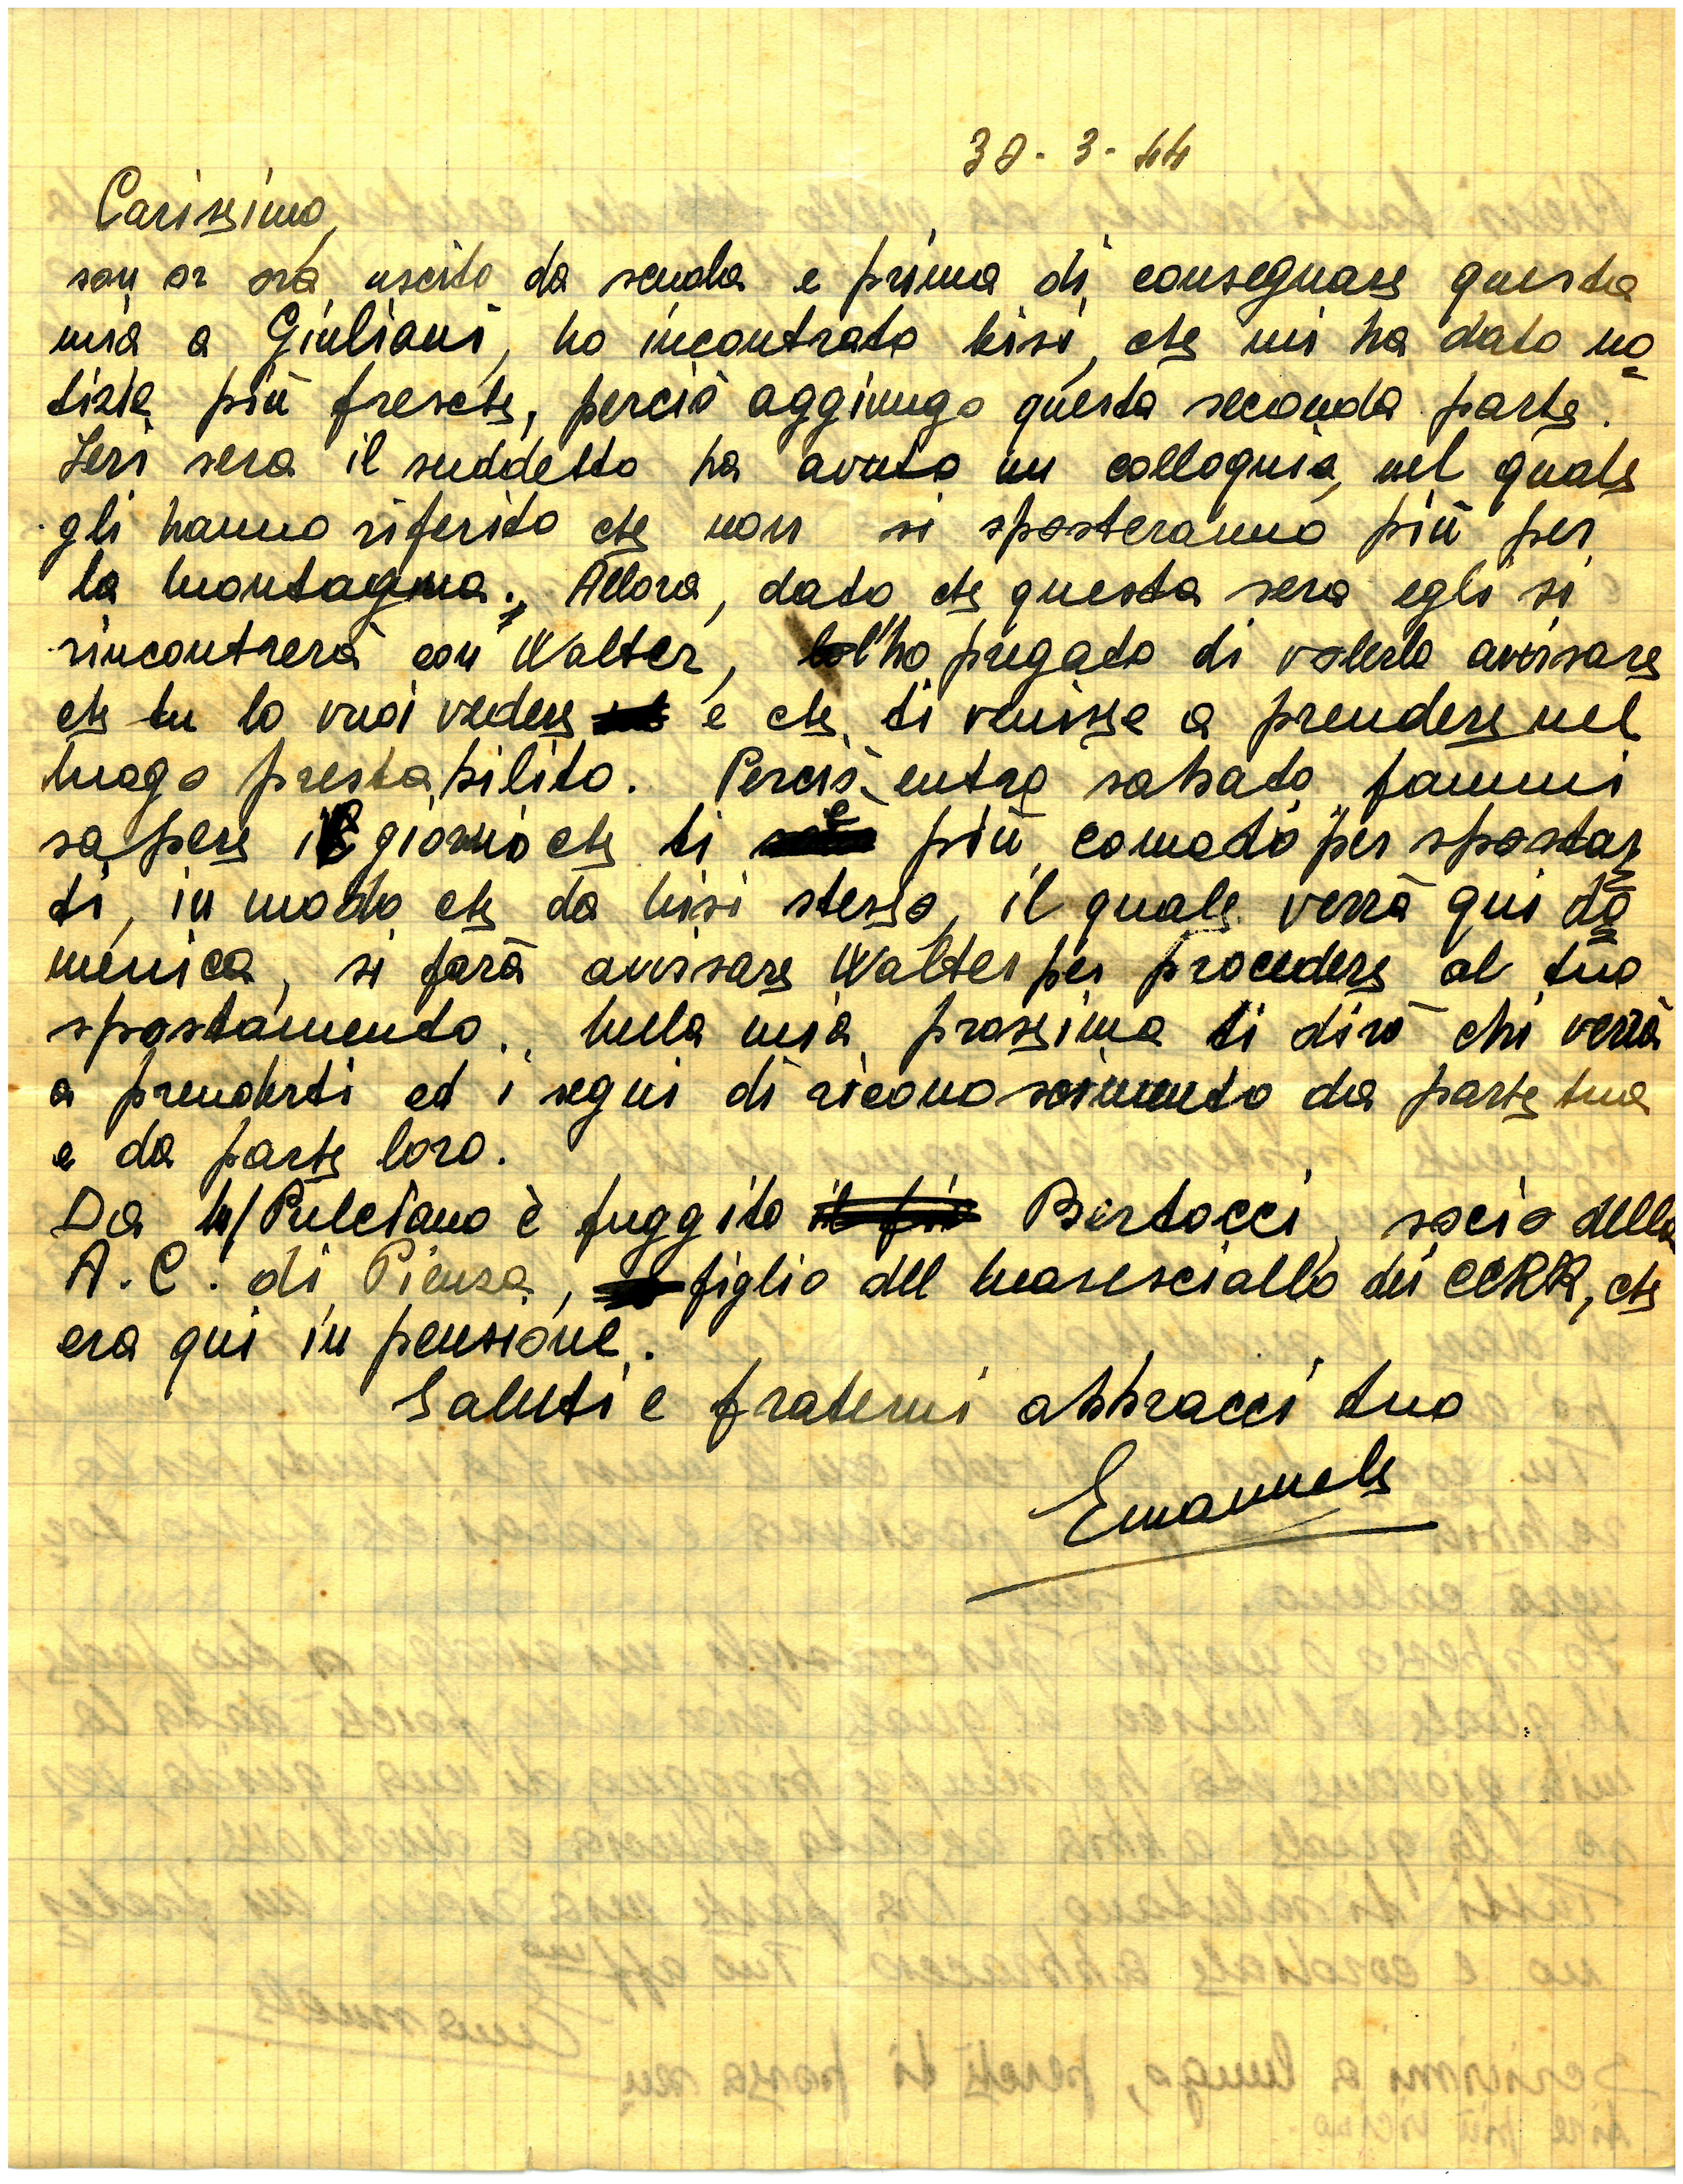 30-3-44
Carissimo,
son or ora uscito da scuola e prima di consegnare questa
mia a Giuliani, ho incontrato Nisi, che mi ha dato no
tizie più fresche, perciò aggiungo questa seconda parte.
Ieri sera il suddetto ha avuto un colloquio, nel quale
gli hanno riferito che non si sposteranno più per
la montagna. Allora, dato che questa sera egli si
rincontrerà con Walter, l'ho pregato di volerlo avvisare
che tu lo vuoi vedere e che ti venisse a prendere nel
luogo prestabilito. Perciò entro sabato fammi
sapere il giorno che ti è più comodo per spostar
ti, in modo che da Nisi stesso, il quale verrà qui do
menica, si farà avvisare Walter per procedere al tuo
spostamento. Nella mia prossima ti dirò chi verrà
a prenderti ed i segni di riconoscimento da parte tua
e da parte loro.
Da M/Pulciano è fuggito il fi Bertocci, socio della
A.C. di Pienza, figlio del maresciallo dei CCRR, che
era qui in pensione.
Saluti e fraterni abbracci tuo
Emanuele